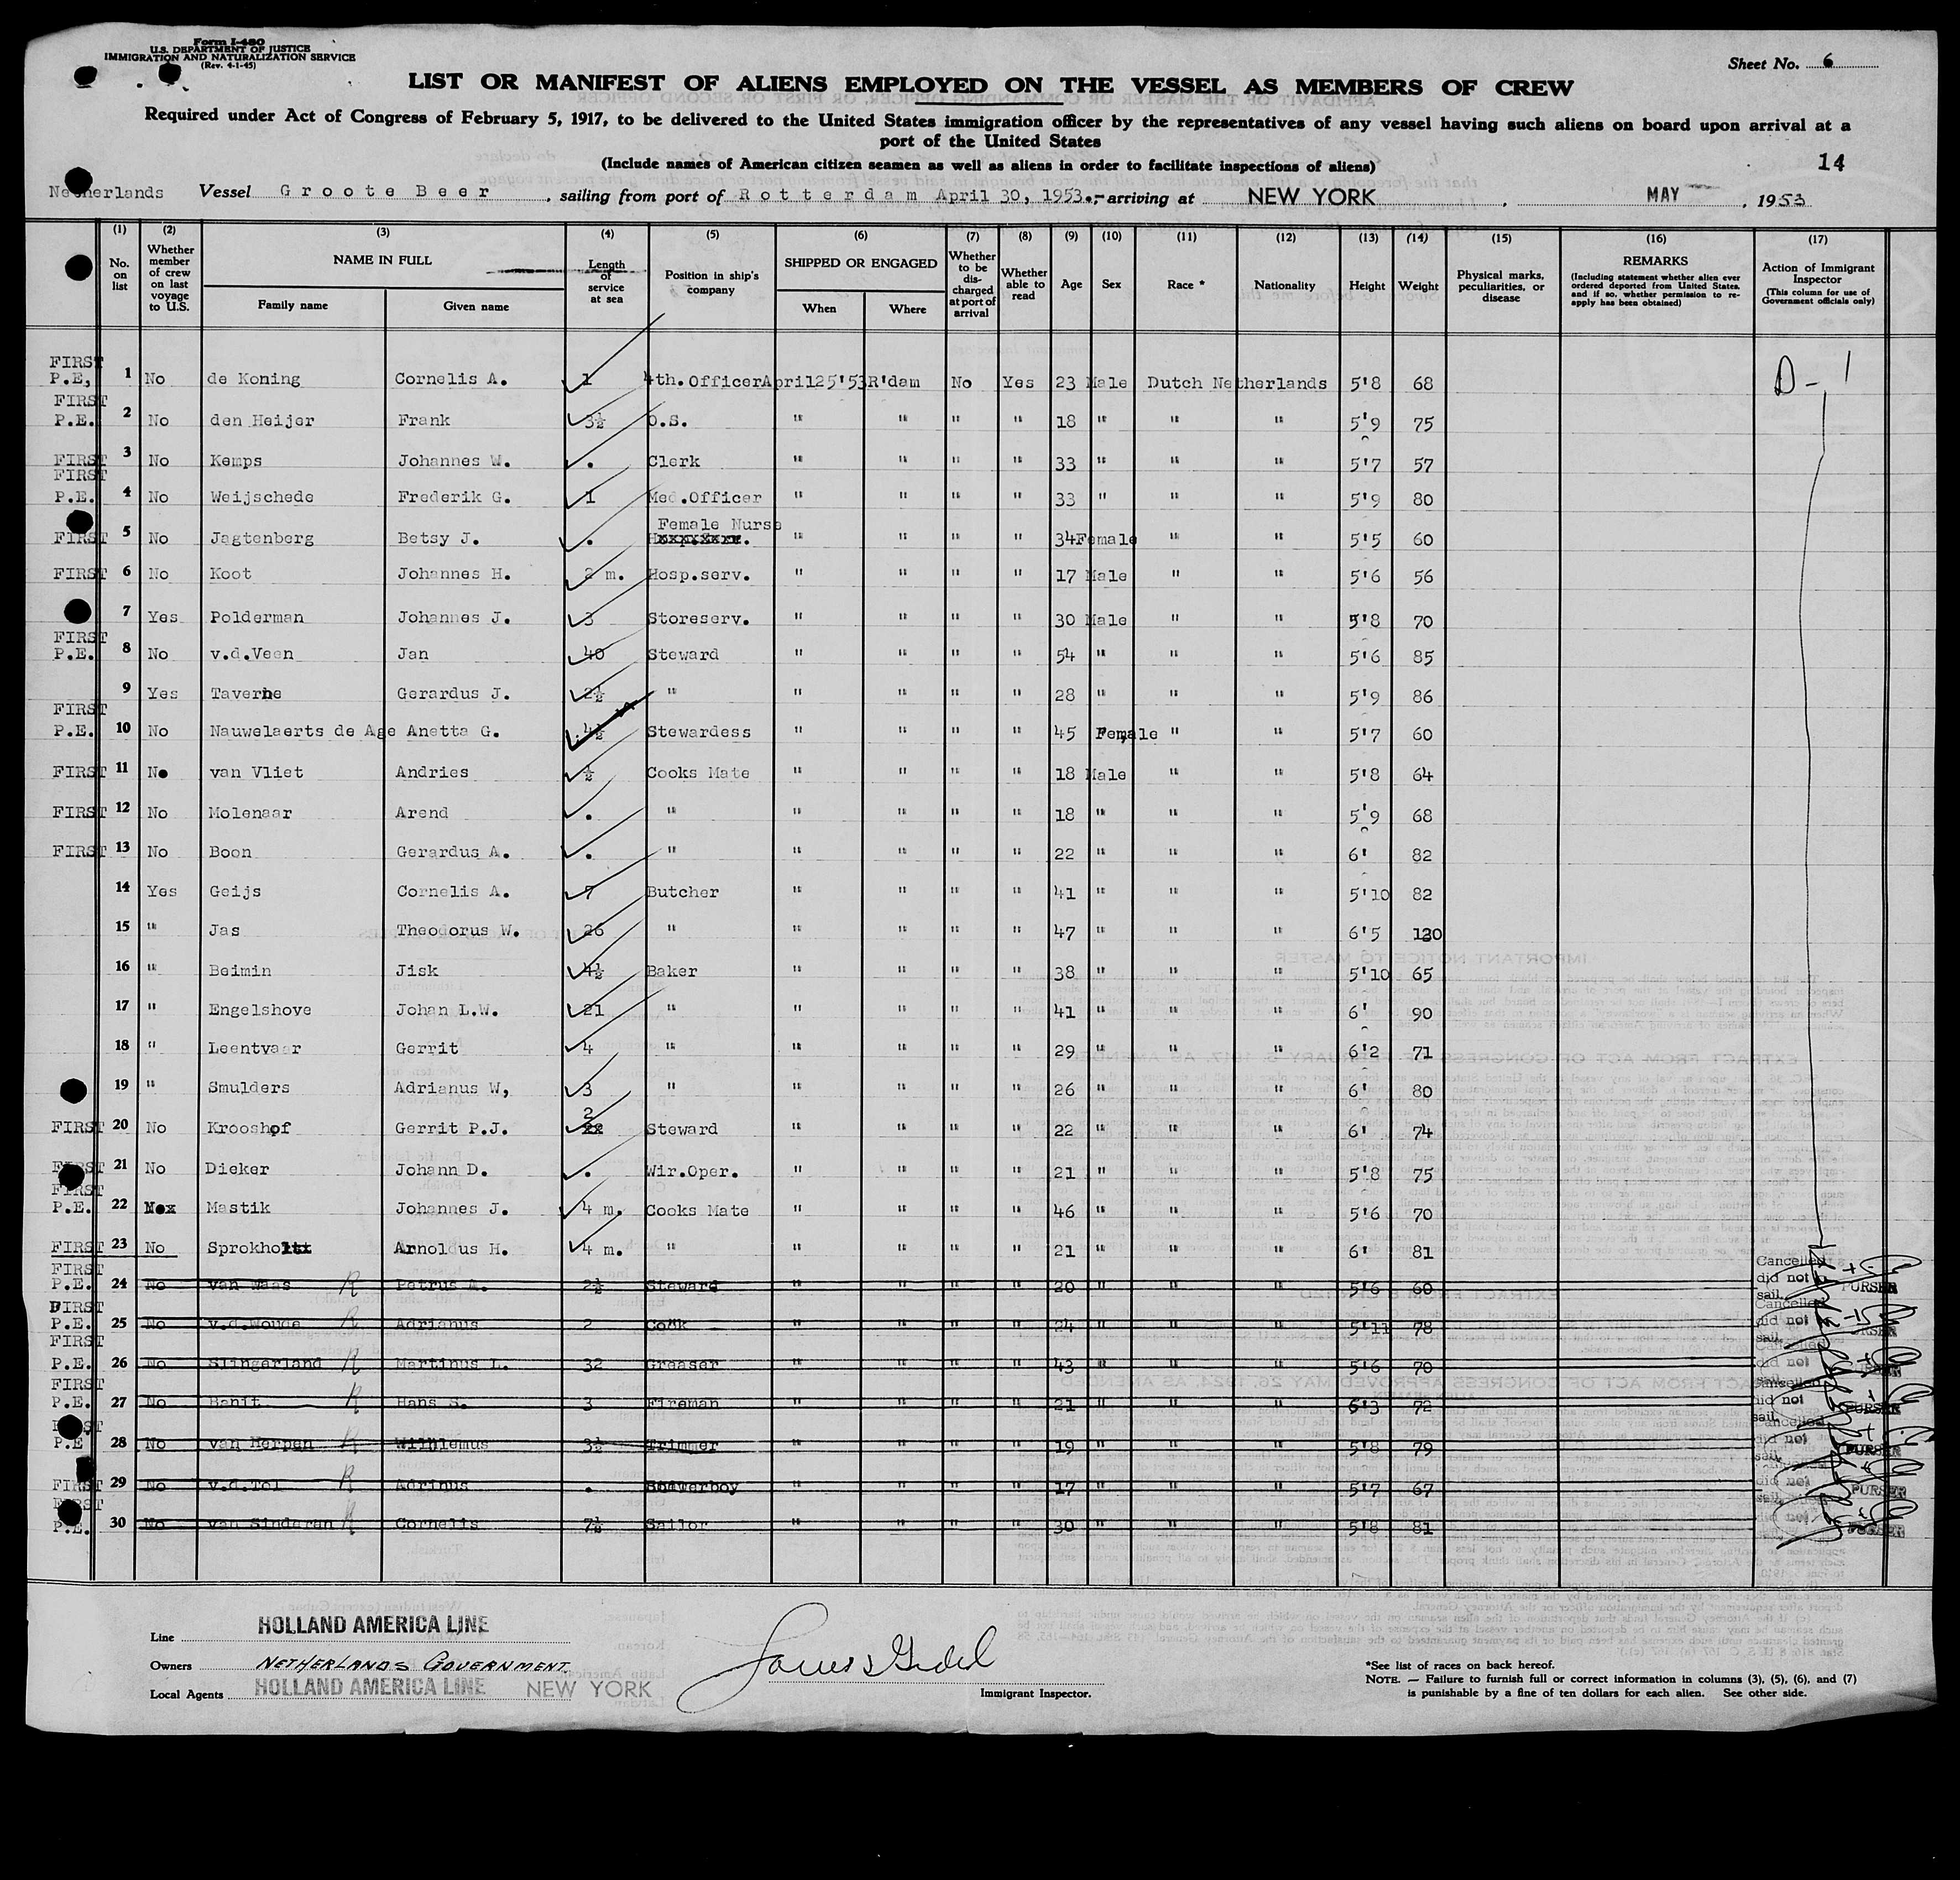 Form I-480
U.S. DEPARTMENT OF JUSTICE
IMMIGRATION AND NATURALIZATION SERVICE
(Rev. 4-1-45)
Sheet No. 6
LIST OR MANIFEST OF ALIENS EMPLOYED ON THE VESSEL AS MEMBERS OF CREW
Required under Act of Congress of February 5, 1917, to be delivered to the United States immigration officer by the representatives of any vessel having such aliens on board upon arrival at a
port of the United States
(Include names of American citizen seamen as well as aliens in order to facilitate inspections of aliens)
14
Netherlands Vessel Groote Beer, sailing from port of Rotterdam April 30, 1953.- arriving at NEW YORK, MAY, 1953
(1) No. on list
(2) Whether member of crew on last voyage to U.S.
(3) NAME IN FULL Family name Given name
(4) Length of service at sea
(5) Position in ship's company
(6) SHIPPED OR ENGAGED When Where
(7) Whether to be discharged at port of arrival
(8) Whether able to read
(9) Age
(10) Sex
(11) Race *
(12) Nationality
(13) Height
(14) Weight
(15) Physical marks, peculiarities, or disease
(16) REMARKS (Including statement whether alien ever ordered deported from United States, and if so, whether permission to re-apply has been obtained)
(17) Action of Immigrant Inspector (This column for use of Government officials only)
FIRST P.E, 1 No de Koning Cornelis A. 1 4th.Officer April25'53 R'dam No Yes 23 Male Dutch Netherlands 5'8 68 D-1
FIRST P.E. 2 No den Heijer Frank 3½ O.S. " " " " 18 " " " 5'9 75
FIRST 3 No Kemps Johannes W. . Clerk " " " " 33 " " " 5'7 57
FIRST P.E. 4 No Weijschede Frederik G. 1 Med.Officer " " " " 33 " " " 5'9 80
FIRST 5 No Jagtenberg Betsy J. . Female Nurse " " " " 34 Female " " 5'5 60
FIRST 6 No Koot Johannes H. 2 m. Hosp.serv. " " " " 17 Male " " 5'6 56
7 Yes Polderman Johannes J. 3 Storeserv. " " " " 30 Male " " 5'8 70
FIRST P.E. 8 No v.d.Veen Jan 40 Steward " " " " 54 " " " 5'6 85
9 Yes Taverne Gerardus J. 2½ " " " " " 28 " " " 5'9 86
FIRST P.E. 10 No Nauwelaerts de Age Anetta G. 4½ Stewardess " " " " 45 Female " " 5'7 60
FIRST 11 No van Vliet Andries ½ Cooks Mate " " " " 18 Male " " 5'8 64
FIRST 12 No Molenaar Arend . " " " " " 18 " " " 5'9 68
FIRST 13 No Boon Gerardus A. . " " " " " 22 " " " 6' 82
14 Yes Geijs Cornelis A. 7 Butcher " " " " 41 " " " 5'10 82
15 " Jas Theodorus W. 26 " " " " " 47 " " " 6'5 130
16 " Beimin Jisk 4½ Baker " " " " 38 " " " 5'10 65
17 " Engelshove Johan L.W. 21 " " " " " 41 " " " 6' 90
18 " Leentvaar Gerrit 4 " " " " " 29 " " " 6'2 71
19 " Smulders Adrianus W, 3 " " " " " 26 " " " 6' 80
FIRST 20 No Krooshof Gerrit P.J. 2 Steward " " " " 22 " " " 6' 74
FIRST 21 No Dieker Johann D. . Wir.Oper. " " " " 21 " " " 5'8 75
FIRST P.E. 22 Nox Mastik Johannes J. 4 m. Cooks Mate " " " " 46 " " " 5'6 70
FIRST 23 No Sprokholt Arnoldus H. 4 m. " " " " " 21 " " " 6' 81
FIRST P.E. 24 No van Maas R Petrus A. 2½ Steward " " " " 20 " " " 5'6 60 Cancelled did not sail. PURSER
FIRST P.E. 25 No v.d.Woude R Adrianus 2 Cook " " " " 24 " " " 5'11 78 Cancelled did not sail. PURSER
FIRST P.E. 26 No Slingerland R Martinus L. 32 Greaser " " " " 43 " " " 5'6 70 Cancelled did not sail. PURSER
FIRST P.E. 27 No Banit R Hans S. 3 Fireman " " " " 21 " " " 6'3 72 Cancelled did not sail. PURSER
FIRST P.E 28 No van Herpen R Wilhlemus 3½ Trimmer " " " " 19 " " " 5'8 79 Cancelled did not sail. PURSER
FIRST 29 No v.d.Tol R Adrinus . " " " " 17 " " " 5'7 67 did not sail. PURSER
FIRST P.E. 30 No van Sinderen R Cornelis 7½ Sailor " " " " 30 " " " 5'8 81 did not PURSER
Line HOLLAND AMERICA LINE
Owners NETHERLANDS GOVERNMENT
Local Agents HOLLAND AMERICA LINE NEW YORK
Immigrant Inspector.
*See list of races on back hereof.
NOTE. — Failure to furnish full or correct information in columns (3), (5), (6), and (7)
is punishable by a fine of ten dollars for each alien. See other side.